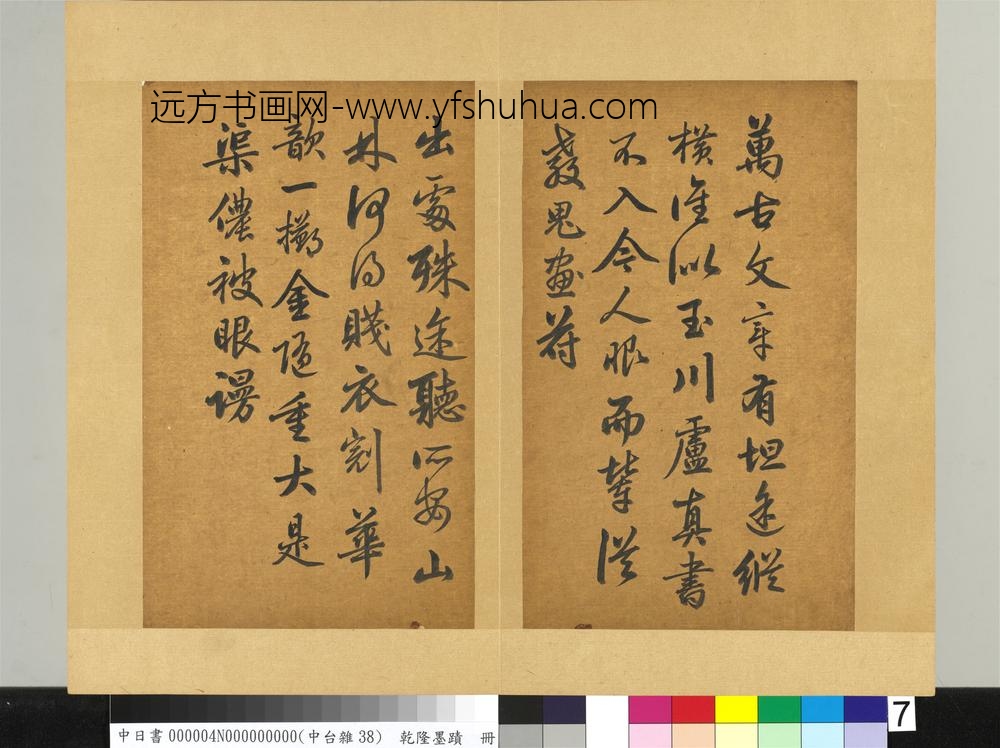 远方书画网-www.yfshuhua.com
萬古文章有坦途縱
橫誰似玉川盧真書
不入今人眼兒輩從
教鬼畫符
出處殊途聽所安山
林何得賤華
歆一擲金隨重大是
渠儂被眼謾
中日書 000004N000000000(中台雜 38) 乾隆墨蹟 冊
7